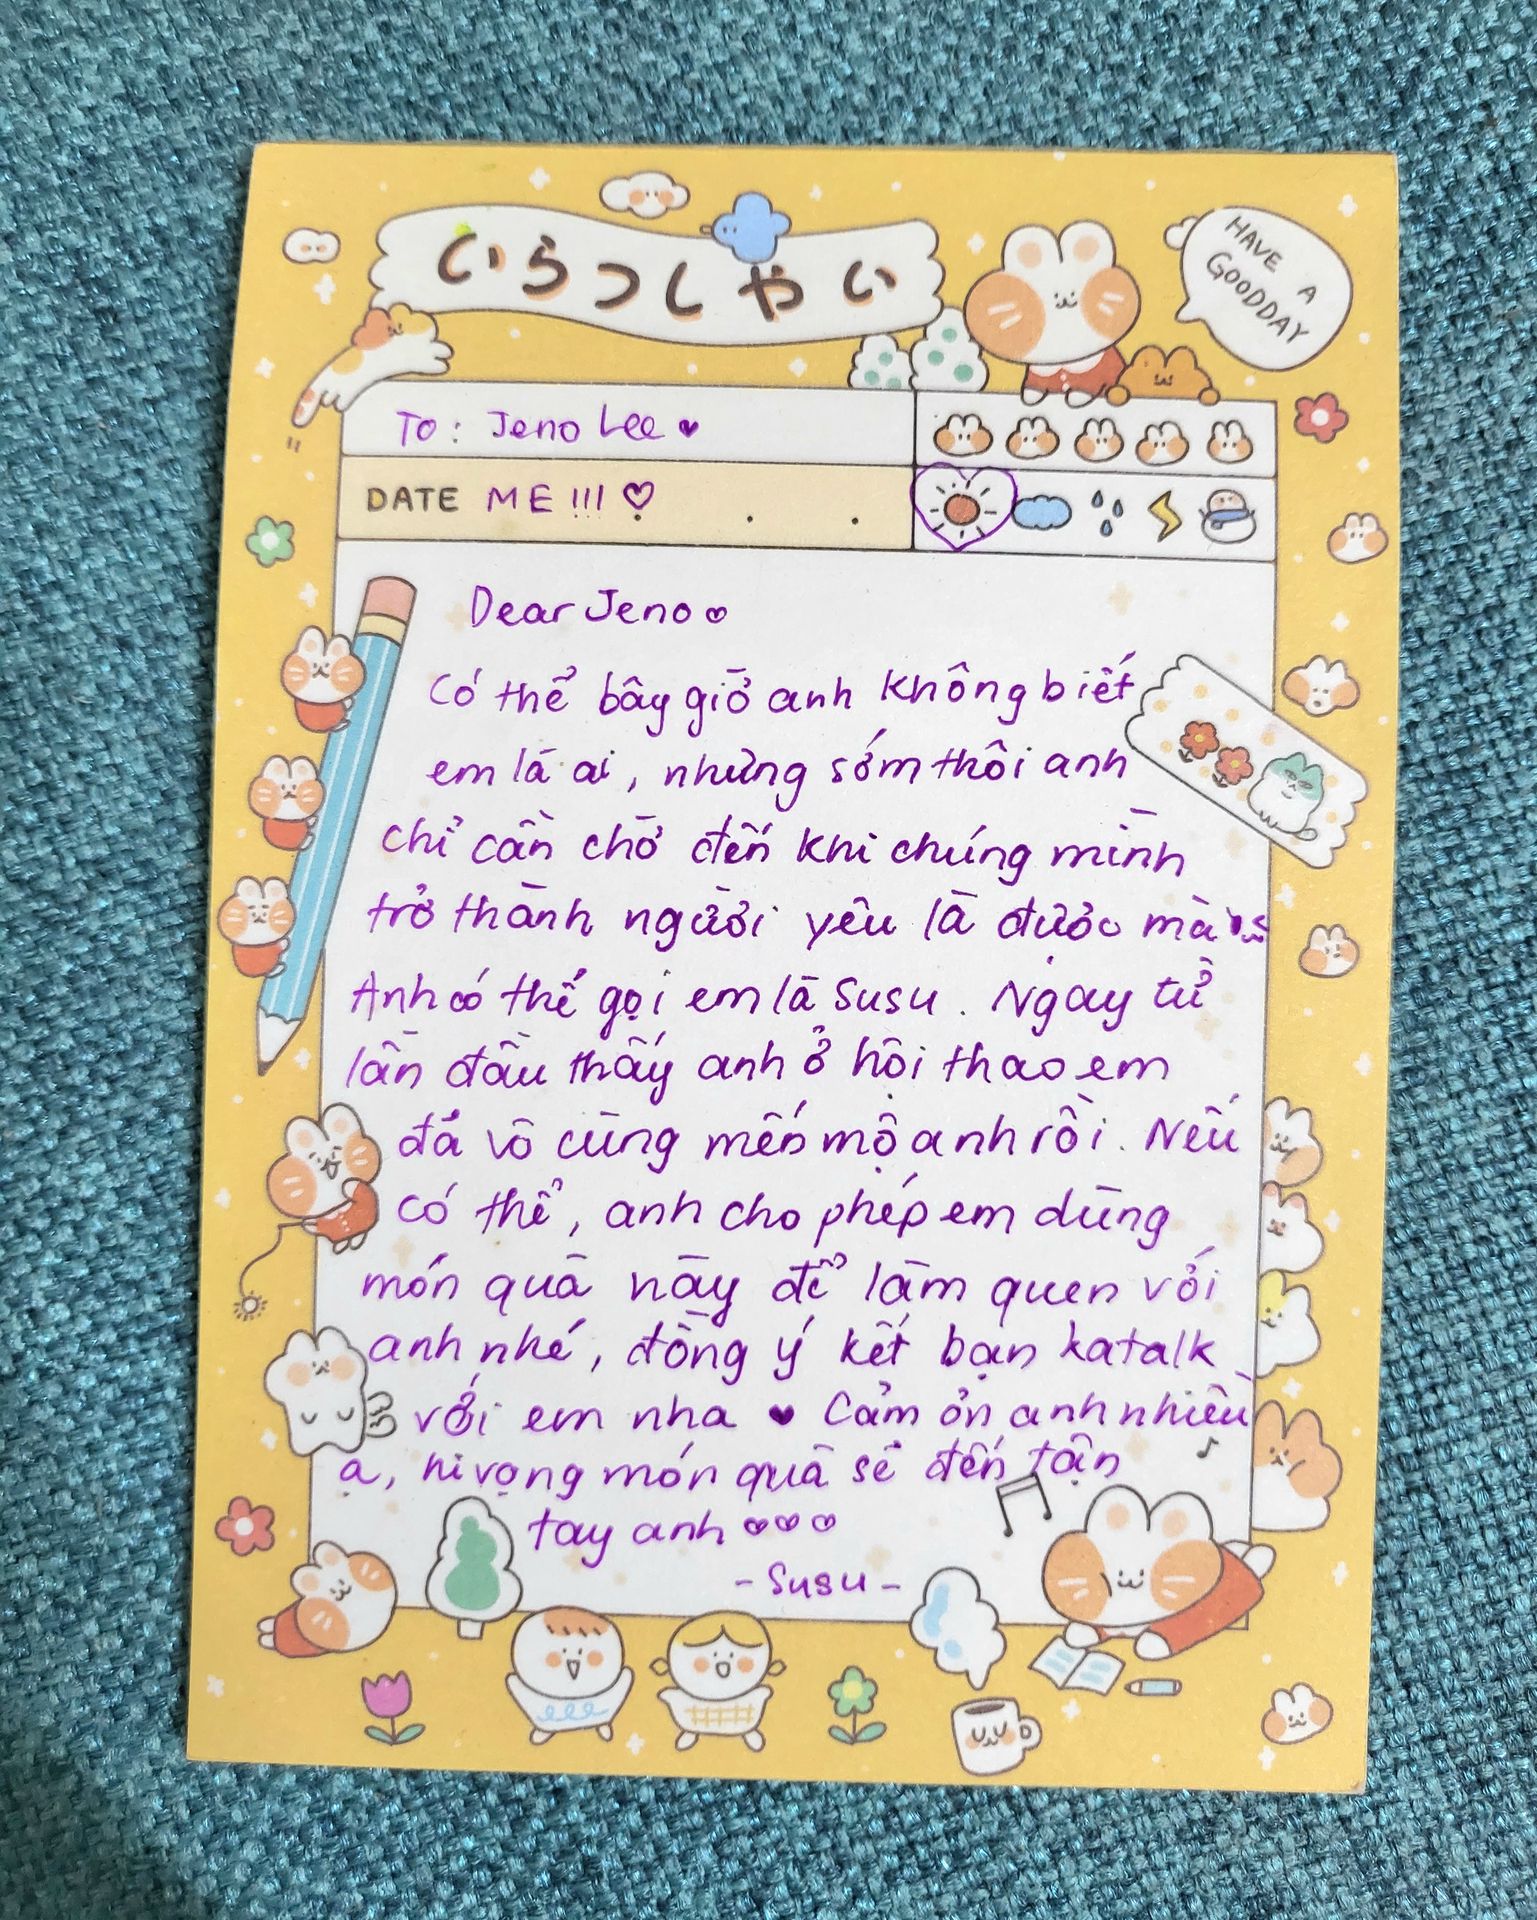 いらっしゃい
HAVE
A
GOODDAY
To: Jeno Lee ♥
DATE ME!!! ♡ . .
Dear Jeno ♡
Có thể bây giờ anh không biết
em là ai, nhưng sớm thôi anh
chỉ cần chờ đến khi chúng mình
trở thành người yêu là được mà
Anh có thể gọi em là Susu. Ngay từ
lần đầu thấy anh ở hội thao em
đã vô cùng mến mộ anh rồi. Nếu
có thể, anh cho phép em dùng
món quà này để làm quen với
anh nhé, đồng ý kết bạn katalk
với em nha ♥ Cảm ơn anh nhiều
ạ, hi vọng món quà sẽ đến tận
tay anh ♡♡♡
- Susu -